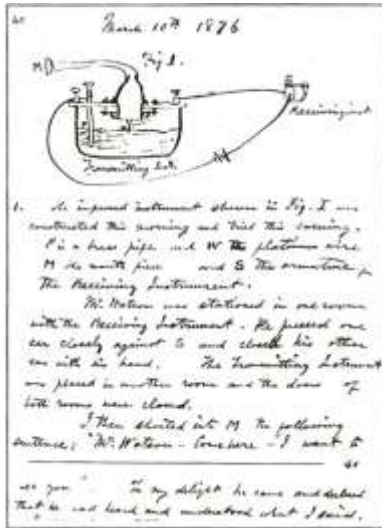 40
March 10th 1876
Fig 1.
M
Receiving Inst
Transmitting Inst.
1. The improved instrument shewn in Fig. I was
constructed this morning and tried this evening.
P is a brass pipe and W the platinum wire
M the mouth piece and S the armature of
the Receiving Instrument.
Mr. Watson was stationed in one room
with the Receiving Instrument. He pressed one
ear closely against S and closed his other
ear with his hand. The Transmitting Instrument
was placed in another room and the doors of
both rooms were closed.
I then shouted into M the following
sentence: "Mr. Watson - Come here - I want to
see you". To my delight he came and declared
that he had heard and understood what I said.